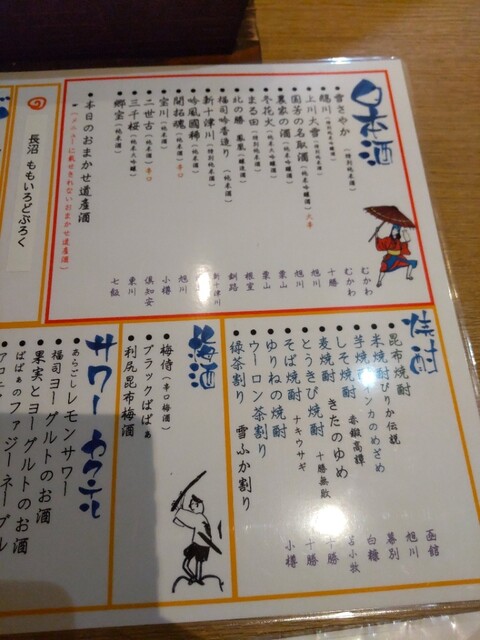 日本酒
雪さやか（特別純米酒） むかわ
鵡川（特別純米吟醸酒） むかわ
上川大雪（特別純米酒） 十勝
国芳の名取酒（純米吟醸酒）大辛 旭川
農家の酒（純米吟醸酒） 旭川
冬花火（純米大吟醸酒） 栗山
まる田（特別純米酒） 栗山
北の勝 鳳凰（醸造酒） 根室
福司吟香造り（純米酒） 釧路
新十津川（特別純米酒） 新十津川
吟風國稀（純米酒）
開拓魂（純米酒）辛口 旭川
宝川（純米酒） 小樽
二世古（純米酒）辛口 倶知安
三千桜（純米大吟醸） 東川
郷宝（純米酒） 七飯
本日のおまかせ道産酒
（メニューに載せきれないおまかせ道産酒）
長沼 ももいろどぶろく
焼酎
昆布焼酎 函館
米焼酎 ぴりか伝説 旭川
のめざめ 幕別
芋焼酎 赤鍛高譚 白糠
しそ焼酎 きたのゆめ 苫小牧
麦焼酎 十勝無敗 十勝
とうきび焼酎 十勝
そば焼酎 ナキウサギ 小樽
ゆりねの焼酎
ウーロン茶割り
緑茶割り 雪ふか割り
梅酒
梅侍（辛口梅酒）
ブラックばばぁ
利尻昆布梅酒
サワーカクテル
あらごしレモンサワー
福司ヨーグルトのお酒
果実とヨーグルトのお酒
ばばぁのファジーネーブル